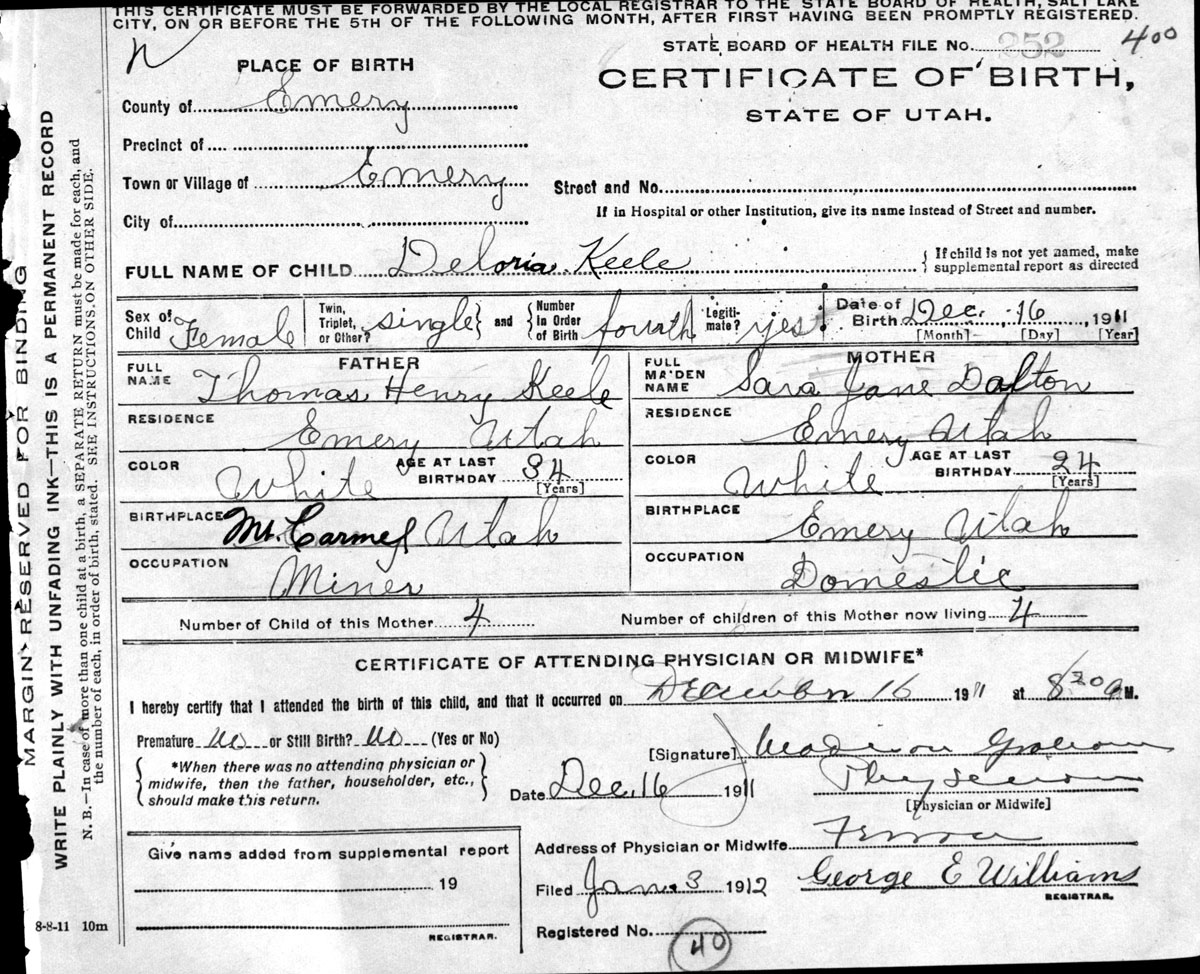 THIS CERTIFICATE MUST BE FORWARDED BY THE LOCAL REGISTRAR TO THE STATE BOARD OF HEALTH, SALT LAKE
CITY, ON OR BEFORE THE 5TH OF THE FOLLOWING MONTH, AFTER FIRST HAVING BEEN PROMPTLY REGISTERED.
STATE BOARD OF HEALTH FILE NO. 252 400
N
PLACE OF BIRTH
CERTIFICATE OF BIRTH,
STATE OF UTAH.
County of Emery
Precinct of
Town or Village of Emery
Street and No.
City of
If in Hospital or other Institution, give its name instead of Street and number.
FULL NAME OF CHILD Deloria Keele
{ If child is not yet named, make
supplemental report as directed
Sex of Child Female
Twin, Triplet, or Other? single } and { Number In Order of Birth fourth
Legiti-mate? yes
Date of Birth Dec. 16, 1911
[Month] [Day] [Year]
FATHER
FULL NAME Thomas Henry Keele
RESIDENCE Emery Utah
COLOR White
AGE AT LAST BIRTHDAY 34
[Years]
BIRTHPLACE Mt. Carmel Utah
OCCUPATION Miner
MOTHER
FULL MAIDEN NAME Sara Jane Dalton
RESIDENCE Emery Utah
COLOR White
AGE AT LAST BIRTHDAY 24
[Years]
BIRTHPLACE Emery Utah
OCCUPATION Domestic
Number of Child of this Mother 4
Number of children of this Mother now living 4
CERTIFICATE OF ATTENDING PHYSICIAN OR MIDWIFE*
I hereby certify that I attended the birth of this child, and that it occurred on December 16 1911 at 8 30 a M.
Premature no or Still Birth? no (Yes or No)
{ *When there was no attending physician or
midwife, then the father, householder, etc.,
should make this return. }
[Signature]
Date Dec. 16 1911
Physician
[Physician or Midwife]
Address of Physician or Midwife
Filed Jan. 3 1912
George E Williams
REGISTRAR.
Registered No. 40
Give name added from supplemental report
19
REGISTRAR.
8-8-11 10m
MARGIN RESERVED FOR BINDING
WRITE PLAINLY WITH UNFADING INK—THIS IS A PERMANENT RECORD
N. B.—In case of more than one child at a birth, a SEPARATE RETURN must be made for each, and
the number of each, in order of birth, stated. SEE INSTRUCTIONS ON OTHER SIDE.